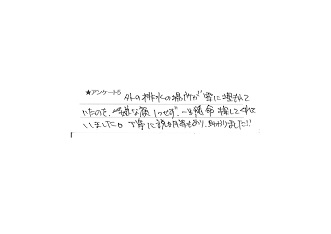 ★アンケート5
外の排水の場所が雪に埋もれて
いたのを、嫌な顔1つせず、一生懸命探してくれて
いました。丁寧に説明等もあり、助かりました!!